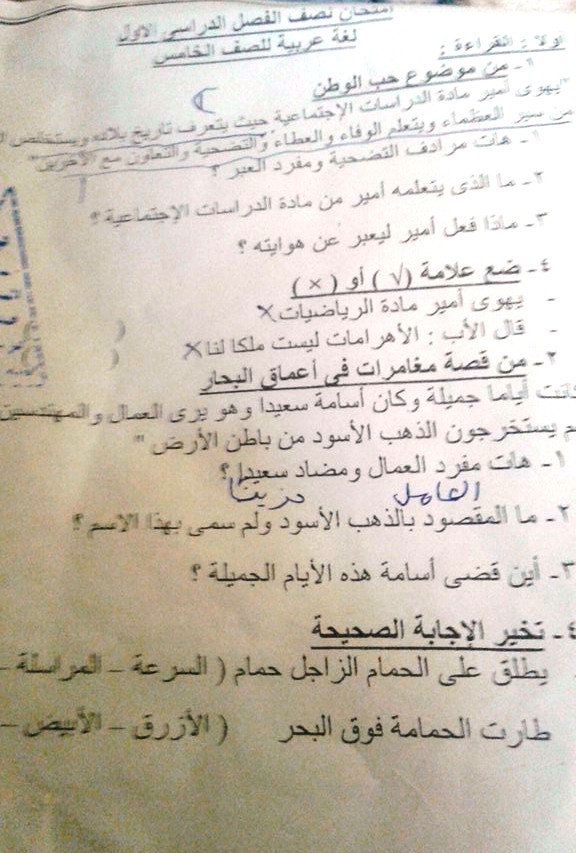 امتحان نصف الفصل الدراسى الاول
لغة عربية للصف الخامس
اولا : القراءة :
١- من موضوع حب الوطن
"يهوى أمير مادة الدراسات الإجتماعية حيث يتعرف تاريخ بلاده ويستخلص
من سير العظماء ويتعلم الوفاء والعطاء والتضحية والتعاون مع الآخرين"
١- هات مرادف التضحية ومفرد العبر ؟
٢- ما الذى يتعلمه أمير من مادة الدراسات الإجتماعية ؟
٣- ماذا فعل أمير ليعبر عن هوايته ؟
٤- ضع علامة (√) أو (×)
- يهوى أمير مادة الرياضيات × )
- قال الأب : الأهرامات ليست ملكا لنا × )
٢- من قصة مغامرات فى أعماق البحار
كانت أياما جميلة وكان أسامة سعيدا وهو يرى العمال والمهندسين
يستخرجون الذهب الأسود من باطن الأرض "
١- هات مفرد العمال ومضاد سعيدا ؟
العامل حزينا
٢- ما المقصود بالذهب الأسود ولم سمى بهذا الاسم ؟
٣- أين قضى أسامة هذه الأيام الجميلة ؟
٤- تخير الإجابة الصحيحة
يطلق على الحمام الزاجل حمام ( السرعة – المراسلة –
طارت الحمامة فوق البحر ( الأزرق – الأبيض –